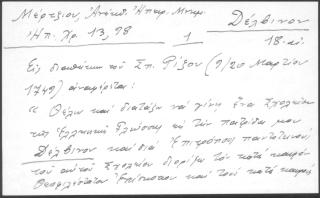 Μέρτζιου, Ἀνέκδ. Ἠπειρ. Μνημ.
Δέλβινον
Ἠπ. Χρ. 13, 98
1
18. αἰ.
Εἰς διαθήκην τοῦ Σπ. Ρίζου (9/20 Μαρτίου
1749) ἀναφέρεται:
« Θέλω καὶ διατάζω νὰ γίνῃ ἕνα Σχολεῖον
τῆς Ἑλληνικῆς Γλώσσης εἰς τὴν πατρίδα μου
Δέλβινον καὶ διὰ Ἐπιτρόπους παντοτεινοὺς
τοῦ αὐτοῦ Σχολείου διορίζω τὸν κατὰ καιρὸν
Θεοφιλέστατον Ἐπίσκοπον καὶ τοὺς κατὰ καιροὺς